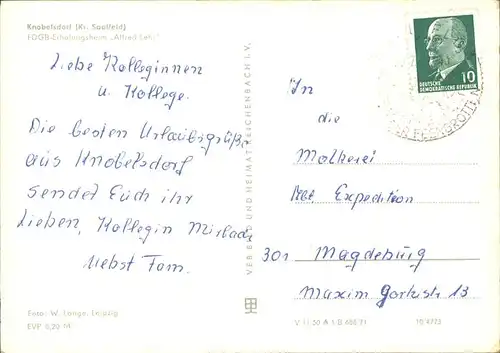 Knobelsdorf (Kr. Saalfeld)
FDGB-Erholungsheim „Alfred
Liebe Kolleginnen
u. Kollege.
Die besten Urlaubsgrüße
aus Knobelsdorf
sendet Euch ihr
Lieben, Kollegin
nebst Fam.
Foto: W. Lange, Leipzig
EVP 0,20 M
VEB BILD UND HEIMAT REICHENBACH I. V.
10
DEUTSCHE
DEMOKRATISCHE REPUBLIK
In
die
Molkerei
Abt. Expedition
301 Magdeburg
Maxim Gorkistr 13